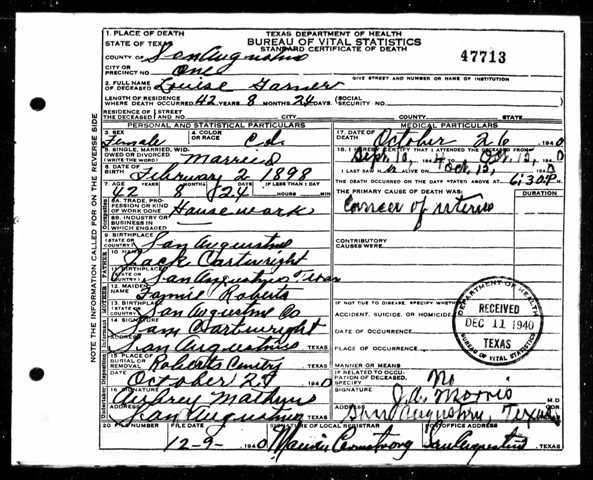 TEXAS DEPARTMENT OF HEALTH
BUREAU OF VITAL STATISTICS
STANDARD CERTIFICATE OF DEATH
47713
1. PLACE OF DEATH
STATE OF TEXAS
COUNTY OF San Augustine
CITY OR PRECINCT NO. One
GIVE STREET AND NUMBER OR NAME OF INSTITUTION
2. FULL NAME OF DECEASED Louise Garner
LENGTH OF RESIDENCE WHERE DEATH OCCURRED 42 YEARS 8 MONTHS 24 DAYS. SOCIAL SECURITY NO.
RESIDENCE OF THE DECEASED STREET AND NO. CITY COUNTY STATE
PERSONAL AND STATISTICAL PARTICULARS
MEDICAL PARTICULARS
3. SEX Female
4. COLOR OR RACE
5. SINGLE, MARRIED, WIDOWED OR DIVORCED (WRITE THE WORD) Married
6. DATE OF BIRTH February 2 1898
7. AGE 42 YEARS 8 MONTHS 24 DAYS IF LESS THAN 1 DAY HOURS MIN
8A. TRADE, PROFESSION OR KIND OF WORK DONE Housework
8B. INDUSTRY OR BUSINESS IN WHICH ENGAGED
9. BIRTHPLACE (STATE OR COUNTRY) San Augustine
10. NAME Jack Cartwright
11. BIRTHPLACE (STATE OR COUNTRY) San Augustine Texas
12. MAIDEN NAME Roberts
13. BIRTHPLACE (STATE OR COUNTRY) San Augustine Co
14. SIGNATURE Cartwright
ADDRESS San Augustine TEXAS
15. PLACE OF BURIAL OR REMOVAL Roberts
DATE October 1940
16. SIGNATURE Aubrey
ADDRESS San Augustine TEXAS
17. DATE OF DEATH October 26 1940
18. I HEREBY CERTIFY THAT I ATTENDED THE DECEASED FROM
Sept. 10, 194 TO Oct. 1940
I LAST SAW H ALIVE ON Oct. 1940
THE DEATH OCCURRED ON THE DATE STATED ABOVE AT 6:30 P.M.
THE PRIMARY CAUSE OF DEATH WAS: DURATION
Cancer of uterus
CONTRIBUTORY CAUSES WERE:
IF NOT DUE TO DISEASE, SPECIFY WHETHER
ACCIDENT, SUICIDE, OR HOMICIDE
DATE OF OCCURRENCE
PLACE OF OCCURRENCE
MANNER OR MEANS
IF RELATED TO OCCUPATION OF DECEASED, SPECIFY No
SIGNATURE J. A. Morris M.D.
ADDRESS San Augustine, Texas
DEPARTMENT OF HEALTH
RECEIVED
DEC 11 1940
TEXAS
BUREAU OF VITAL STATISTICS
20. FILE NUMBER FILE DATE SIGNATURE OF LOCAL REGISTRAR POST OFFICE ADDRESS
12-9- 1940 Armstrong San Augustine TEXAS
NOTE THE INFORMATION CALLED FOR ON THE REVERSE SIDE